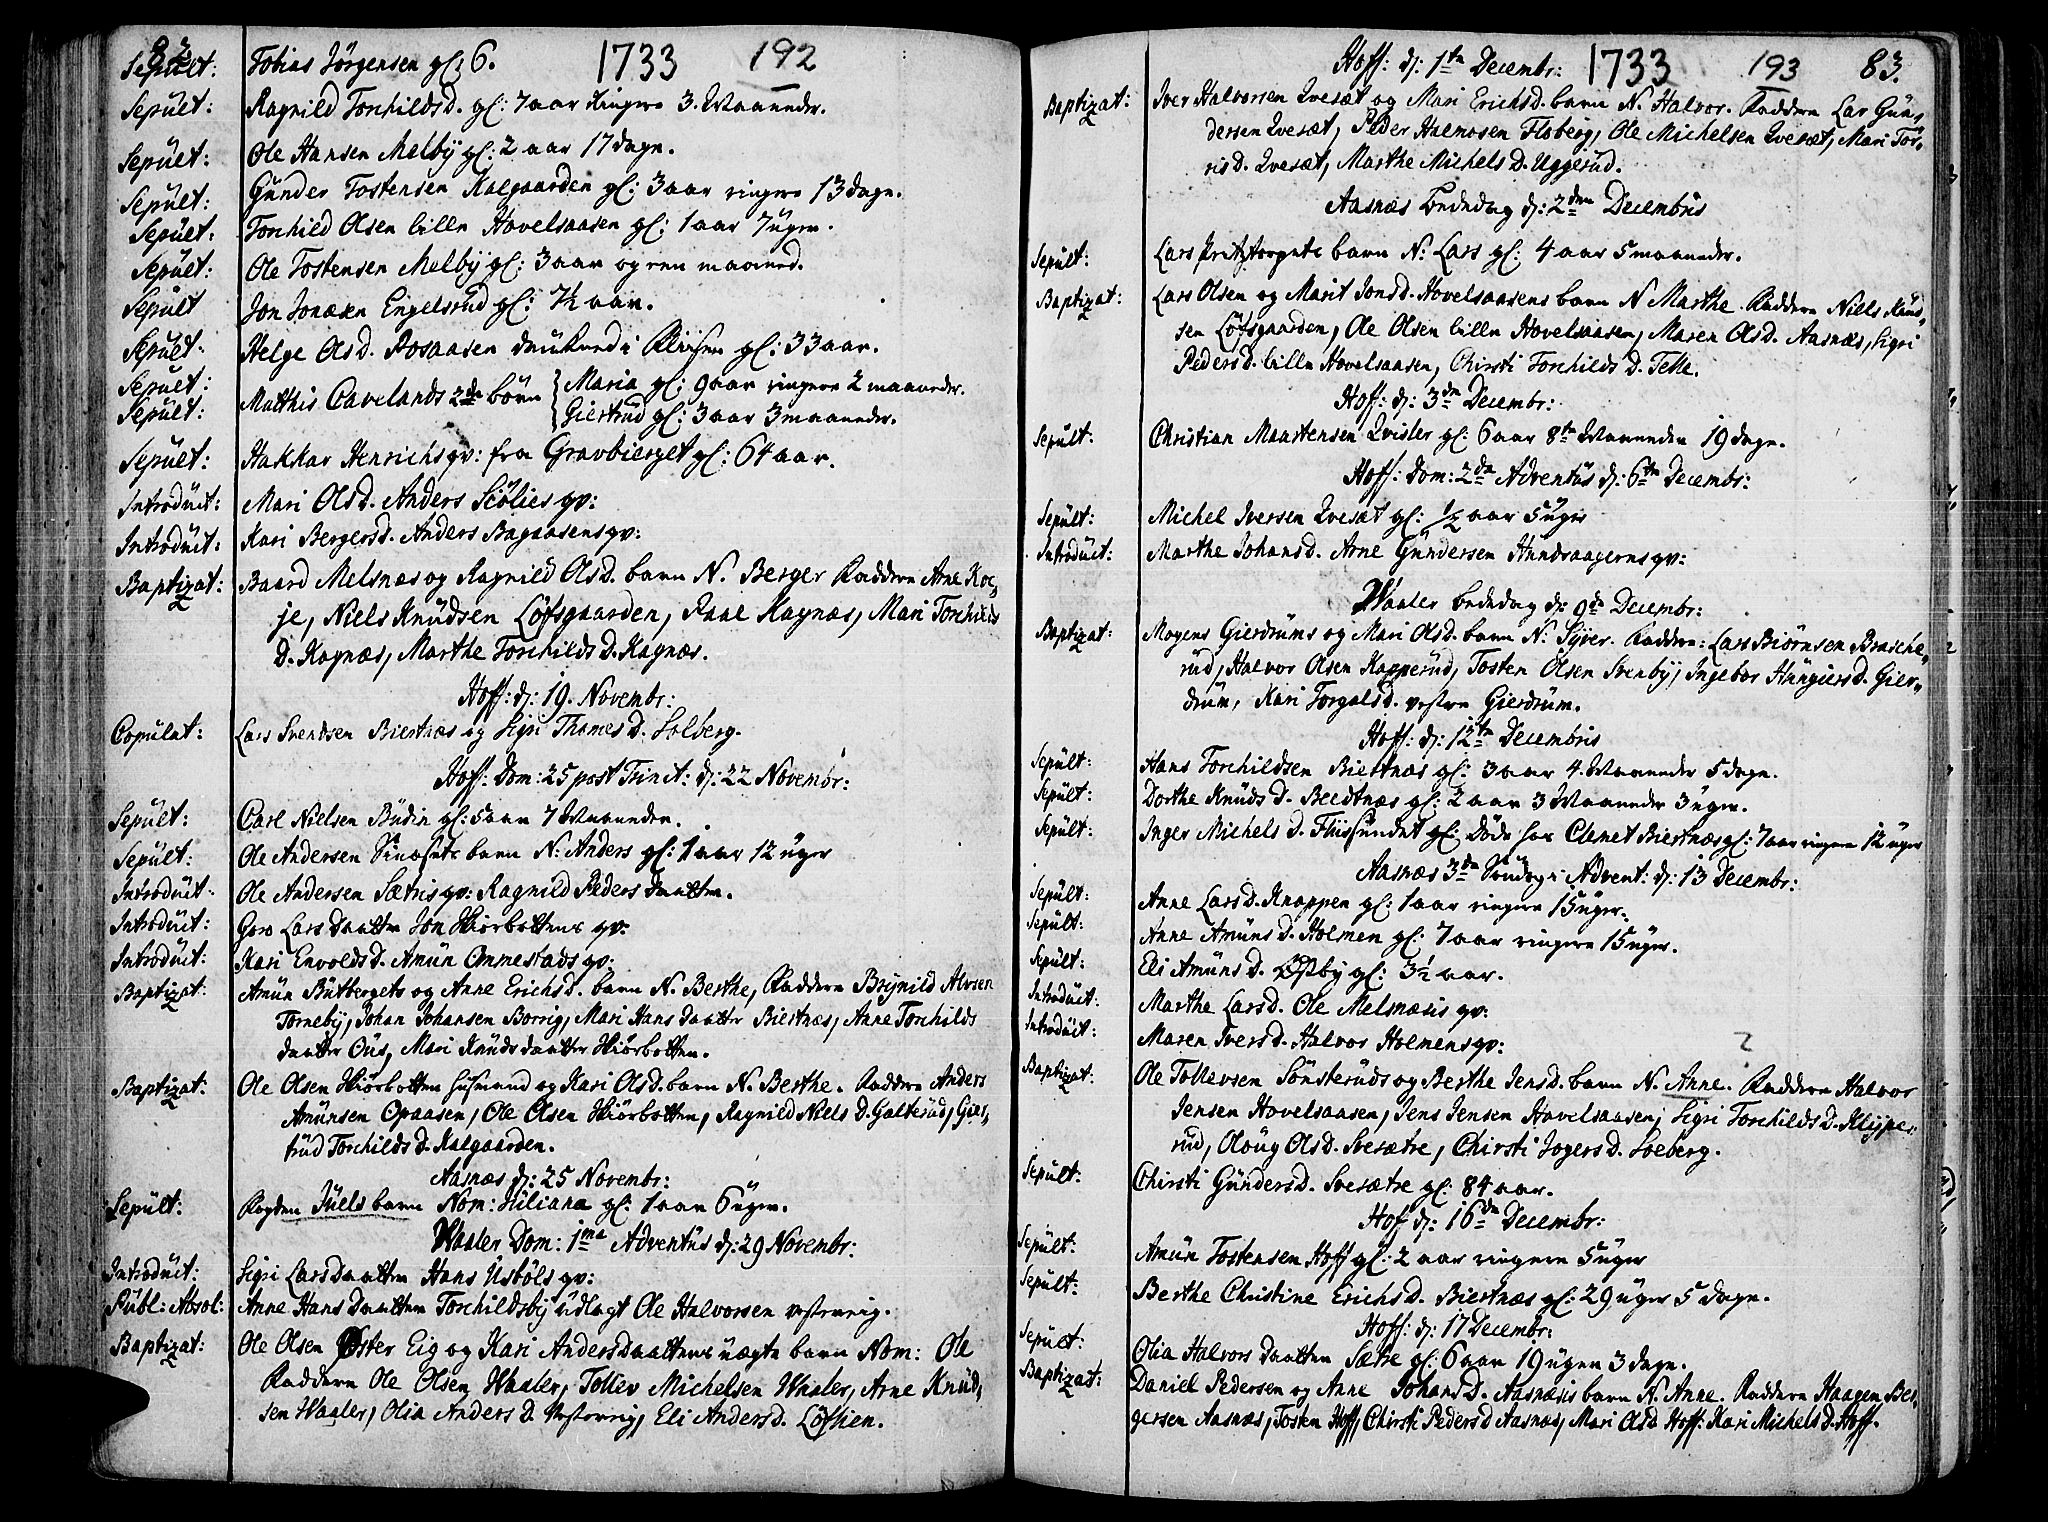 82
1733 192
Sepult: Tobias Jörgensen gl: 6.
Sepult: Ragnild Torchilds D. gl: 7 aar ringere 3. Maaneder.
Sepult: Ole Hansen Melby gl: 2 aar 17 dage.
Sepult: Gunder Tostensen Kalgaarden gl: 3 aar ringere 13 dage.
Sepult: Torchild Olsen lille Hovelsaasen gl: 1 aar 7 uger.
Sepult: Ole Tostensen Melby gl: 3 aar og een maaned.
Sepult Jon Jonæsen Engelsrud gl: 7½ aar.
Sepult: Helge Ols D. Posaasen drukned i gl: 33 aar.
Sepult: Matthis Cavelands 2de börn Maria gl: 9 aar ringere 2 maaneder.
Sepult: Giertrud gl: 3 aar 3 maaneder.
Sepult: Hakkar Henrichs qv: fra Gravbierget gl: 64 aar.
Introduct: Mari Ols D. Anders Sciölies qv:
Introduct: Kari Bergers d. Anders Bagaasens qv:
Baptizat: Baard Melsnæs og Ragnild Ols D. barn N. Berger Faddere Arne Koe,
je, Niels Knudsen Löfsgaarden, Paal Kagnæs, Mari Torchilds
D. Kagnæs, Marthe Torchilds D. Kagnæs.
Hoff: d: 19. Novembr:
Copulat: Lars Svendsen Biertnæs og Sigri Thomes D. Solberg.
Hoff: Dom: 25 post Trinit: d: 22 Novembr:
Sepult: Carl Nielsen Budin gl: 5 aar 7 Maaneder.
Sepult: Ole Andersen barn N: Anders gl: 1 aar 12 uger
Introduct: Ole Andersen Sætris qv: Ragnild Peders Daatter.
Introduct: Goro Lars Daatter Jon Kiörbottens qv:
Introduct: Kari Envolds D. Amun Ommestads qv:
Baptizat: Amun Butbergets og Anne Erichs D. barn N. Berthe, Faddere Brynild Alvsen
Torneby, Johan Johansen Borrig, Mari Hans Daatter Biertnæs, Anne Torchilds
daatter Ous, Mari Knuds daatter Kiörbotten.
Baptizat: Ole Olsen Kiörbotten husmand og Kari Ols D. barn N. Berthe. Faddere Anders
Amunsen Opaasen, Ole Olsen Kiörbotten, Ragnild Niels D. Galterud, Gier,
trud Torchilds D. Kalgaarden.
Aasnæs d: 25 Novembr:
Sepult: Fogden Juels barn Nom: Juliana gl: 1 aar 6 uger.
Waaler Dom: 1ma Adventus d: 29 Novembr:
Introduct: Sigri Lars Daatter Hans Usböls qv:
Publ: Absol: Anne Hans Daatter Torchildsby udlagt Ole Halvorsen vestereig.
Baptizat: Ole Olsen Öster Eig og Kari Anders Daatters uægte barn Nom: Ole
Faddere Ole Olsen Waaler, Tollev Michelsen Waaler, Arne Knud,
sen Waaler, Olia Anders D. Vestereig, Eli Anders D. Löfsien.
1733 193 83.
Hoff: d: 1te Decembr:
Baptizat: Iver Halvorsen Qvesæt og Mari Erichs D. barn N. Halvor. Faddere Lar Gun,
dersen Qvesæt, Peder Halmosen Floberg, Ole Michelsen Qvesæt, Mari Tor,
ris D. Qvesæt, Marthe Michels D. Uggerud.
Aasnæs bededag d: 2den Decembris
Sepult: Lars barn N: Lars gl: 4 aar 5 maaneder.
Baptizat: Lars Olsen og Marit Jons D. Hovelsaasens barn N Marthe. Faddere Niels Knud,
sen Löfsgaarden, Ole Olsen lille Hovelsaasen, Maren Ols D. Aasnæs, Sigri
Peders D. lille Hovelsaasen, Chirsti Torchilds D. Telle.
Hoff: d: 3de Decembr:
Sepult: Christian Maartensen Qvisler gl: 6 aar 8te Maaneder 19 dage.
Hoff: Dom: 2da Adventus d: 6te Decembr:
Sepult: Michel Iversen Qvesæt gl: ½ aar 5 uger
Introduct: Marthe Johans D. Arne Gundersen Hundsaagerns qv:
Waaler bededag d: 9de Decembr:
Baptizat: Mogens Gierdrums og Mari Ols D. barn N: Syver. Faddere: Lars Biörnsen Brasche,
rud, Halvor Olsen Kapperud, Tosten Olsen Svenby, Ingebor Hungiers D. Gier,
drum, Kari Torgals D. vestre Gierdrum.
Hoff: d: 12te Decembris
Sepult: Hans Torchildsen Biertnæs gl: 3 aar 4. Maaneder 5 dage.
Sepult: Dorthe Knuds D. Beedtnæs gl: 2 aar 3 Maaneder 3 uger.
Sepult: Inger Michels D. Fliissundet gl: döde hos Clemet Biertnæs gl: 7 aar ringere 12 uger
Aasnæs 3de Söndag i Advent: d: 13 Decembr:
Sepult: Anne Lars D. Knappen gl: 1 aar ringere 15 uger.
Sepult: Anne Amuns D. Holmen gl: 7 aar ringere 15 uger.
Sepult: Eli Amuns D. Östby gl: 3½ aar.
Introduct: Marthe Lars D. Ole Melsnæsis qv:
Introduct: Maren Ivers D. Halvor Holmens qv:
Baptizat: Ole Tollevsen Sönsteruds og Berthe Jens D. barn N. Anne. Faddere Halvor
Jensen Hovelsaasen, Jens Jensen Hovelsaasen, Sigri Torchilds D. Klyper,
rud, Oloug Ols D. Svesætre, Chirsti Jogers D. Soeberg.
Sepult: Chirsti Gunders D. Svesætre gl: 84 aar.
Hof d: 16de Decembr:
Sepult: Amun Tostensen Hoff gl: 2 aar ringere 5 uger
Sepult: Berthe Christine Erichs D. Biertnæs gl: 29 uger 5 dage.
Hoff: d: 17 Decembr:
Sepult: Olia Halvors daatter Sætre gl: 6 aar 19 uger 3 dage.
Baptizat: Daniel Pedersen og Anne Johans D. Aasnæsis barn N. Anne. Faddere Haagen Ber,
gersen Aasnæs, Tosten Hoff, Chirsti Peders D Aasnæs, Mari Ols D Hoff: Kari Michels D. Hoff.